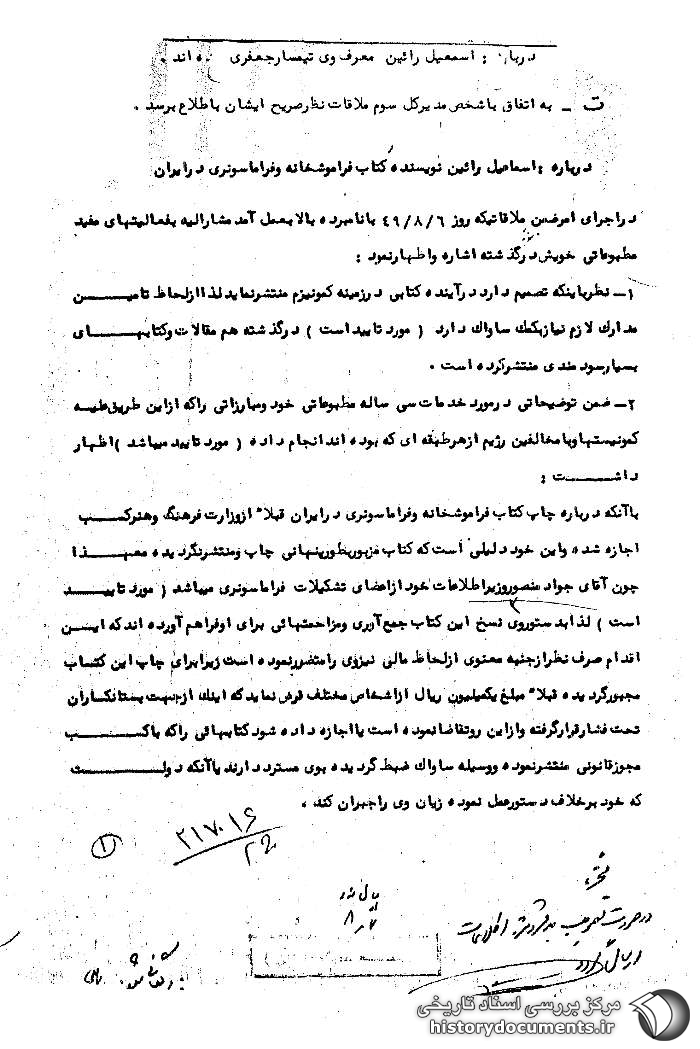 درباره : اسمعیل رائین معرف وی تیمسار جعفری ه اند .
ت ـ به اتفاق با شخص مدیرکل سوم ملاقات نظر صریح ایشان باطلاع برسد .
درباره : اسماعیل رائین نویسنده کتاب فراموشخانه و فراماسونری در ایران
در اجرای امر ضمن ملاقاتیکه روز ۴۹/۸/۶ با نامبرده بالا بعمل آمد مشارالیه بفعالیتهای مفید
مطبوعاتی خویش در گذشته اشاره و اظهار نمود :
۱ـ نظر باینکه تصمیم دارد در آینده کتابی در زمینه کمونیزم منتشر نماید لذا از لحاظ تامیـــن
مدارک لازم نیاز بکمک ساواک دارد ( مورد تایید است ) در گذشته هم مقالات و کتابهـــای
بسیار سودمندی منتشر کرده است .
۲ـ ضمن توضیحاتی در مورد خدمات سی ساله مطبوعاتی خود و مبارزاتی را که از این طریق علیه
کمونیستها و یا مخالفین رژیم از هر طبقه ای که بوده اند انجام داده ( مورد تایید میباشد ) اظهار
داشـــــت :
با آنکه درباره چاپ کتاب فراموشخانه و فراماسونری در ایران قبلاً از وزارت فرهنگ و هنر کســـب
اجازه شده و این خود دلیلی است که کتاب مزبور بطور پنهانی چاپ و منتشر نگردیده معهـــذا
چون آقای جواد منصور وزیر اطلاعات خود از اعضای تشکیلات فراماسونری میباشد ( مورد تاییـــد
است ) لذا بدستور وی نسخ این کتاب جمع آوری و مزاحمتهائی برای او فراهم آورده اند که ایـــن
اقدام صرف نظر از جنبه معنوی از لحاظ مالی نیز وی را متضرر نموده است زیرا برای چاپ این کتـــاب
مجبور گردیده قبلاً مبلغ یکمیلیون ریال از اشخاص مختلف قرض نماید که اینک از جهت بستانکاران
تحت فشار قرار گرفته و از این رو تقاضا نموده است یا اجازه داده شود کتابهائی را که با کســـب
مجوز قانونی منتشر نموده و وسیله ساواک ضبط گردیده بوی مسترد دارند یا آنکه دولـــــت
که خود برخلاف دستور عمل نموده زیان وی را جبران کند .
۱
۲۱۷۰۱۶
مرکز بررسی اسناد تاریخی
historydocuments.ir